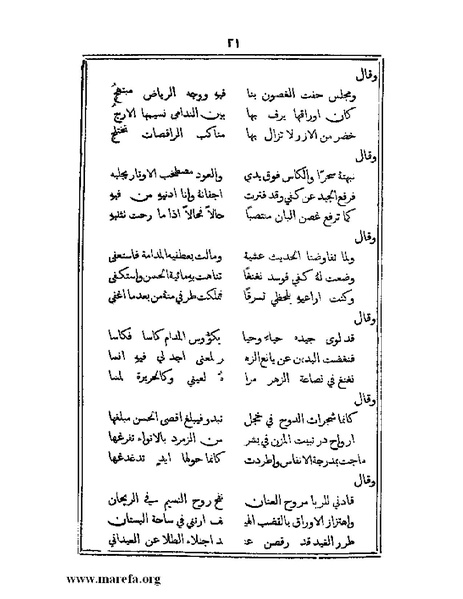 ٢١
وقال
ومجلس حفت الغصون بنا فيه ووجه الرياض مبتهج
كأن اوراقها يرف بها بين الندامى نسيمها الارج
خضر من الازر لا تزال بها مناكب الراقصات تختلج
وقال
نبهته سحرًا والكاس فوق يدي والعود مصطخب الاوتار يجلبه
فرفع الجيد عن كفي وقد فترت اجفانه وانا ادنيه من فيه
كما ترفع غصن البان منتصبًا حالاً فحالاً اذا ما رحت تثنيه
وقال
ولما تفاوضنا الحديث عشية ومالت بعطفيه المدامة فاستعفى
وضعت له كفي فوسد تناهت به مائية الحسن واستكفى
وكنت اراعيه بلحظي تسرقًا فملكت طرفي منه من بعد ما اغفى
وقال
قد لوى جيده حياء وحيا بكؤوس المدام كاسا فكاسا
فنفضت اليدين عن يانع الزهـ ـر لمعنى اجد لي فيه انسا
في نصاعة الزهر مرآ ة لعيني وكالحريرة لمسا
وقال
كانما شجرات الدوح في خجل تبدو فيبلغ اقصى الحسن مبلغها
ارواح در تبيت المزن في بشر من الزمرد بالانواء تفرغها
ماجت بمدرجة الانفاس واطردت كانما حولها ايد تدغدغها
وقال
قادني للربا مروح العنان نفح روح النسيم في الريحان
واهتزاز الاوراق بالقضب الهيـ ـف ارتني في ساحة البستان
طرر الغيد قد رقصن عنـ ـد اجتلاء الطلا عن العيدان
www.marefa.org